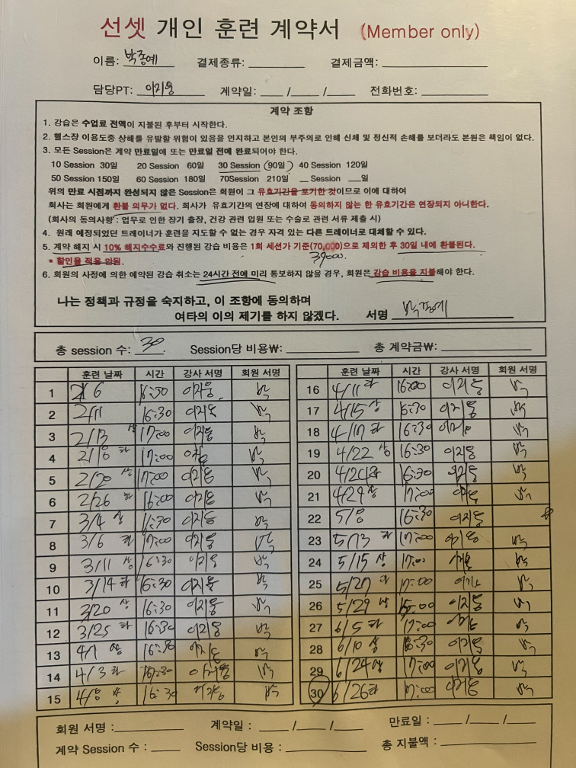 선셋 개인 훈련 계약서 (Member only)
이름: 박종예 결제종류: 결제금액:
담당PT: 이지웅 계약일: / / 전화번호:
계약 조항
1. 강습은 수업료 전액이 지불된 후부터 시작한다.
2. 헬스장 이용도중 상해를 유발할 위험이 있음을 연지하고 본인의 부주의로 인해 신체 및 정신적 손해를 보더라도 본원은 책임이 없다.
3. 모든 Session은 계약 만료일에 또는 만료일 전에 완료되어야 한다.
10 Session 30일 20 Session 60일 30 Session 90일 40 Session 120일
50 Session 150일 60 Session 180일 70Session 210일 __ Session __일
위의 만료 시점까지 완성되지 않은 Session은 회원이 그 유효기간을 포기한 것이므로 이에 대하여
회사는 회원에게 환불 의무가 없다. 회사가 유효기간의 연장에 대하여 동의하지 않는 한 유효기간은 연장되지 아니한다.
(회사의 동의사항 : 업무로 인한 장기 출장, 건강 관련 입원 또는 수술로 관련 서류 제출 시)
4. 원래 예정되었던 트레이너가 훈련을 지도할 수 없는 경우 자격 있는 다른 트레이너로 대체할 수 있다.
5. 계약 해지 시 10% 해지수수료와 진행된 강습 비용은 1회 세션가 기준(70,000)으로 제외한 후 30일 내에 환불된다.
* 할인율 적용 안됨.
6. 회원의 사정에 의한 예약된 강습 취소는 24시간 전에 미리 통보하지 않을 경우, 회원은 강습 비용을 지불해야 한다.
나는 정책과 규정을 숙지하고, 이 조항에 동의하며
여타의 이의 제기를 하지 않겠다. 서명
총 session 수: 30 Session당 비용₩: 총 계약금₩:
훈련 날짜 시간 강사 서명 회원 서명 훈련 날짜 시간 강사 서명 회원 서명
1 2/6 16:30 이지웅 박 16 4/11 화 16:00 이지웅 박
2 2/11 16:30 이지웅 박 17 4/15 상 16:30 이지웅 박
3 2/13 상 17:00 이지웅 박 18 4/17 하 16:30 박
4 2/18 하 17:00 박 19 4/22 상 16:30 이지웅 박
5 2/20 상 17:00 이지웅 박 20 4/24 하 16:30 이지웅 박
6 2/26 하 16:00 이지웅 박 21 4/29 상 17:00 박
7 3/4 상 이지웅 박 22 5/8 16:30 이지웅
8 3/6 하 17:00 이지웅 박 23 5/13 하 17:00 이지웅 박
9 3/11 상 16:30 이지웅 박 24 5/15 상 17:00 박
10 3/14 하 16:30 이지웅 박 25 5/27 하 17:00 박
11 3/20 상 16:30 이지웅 박 26 5/29 상 15:00 이지웅 박
12 3/25 하 16:30 이지웅 박 27 6/5 하 17:00 박
13 4/1 상 16:30 박 28 6/10 상 16:30 이지웅 박
14 4/3 하 16:30 이지웅 박 29 6/24 상 17:00 이지웅 박
15 4/8 상 16:30 박 30 6/26 하 17:00 이지웅 박
회원 서명 : 계약일 : / / 만료일 : / /
계약 Session 수 : Session당 비용 : 총 지불액 :